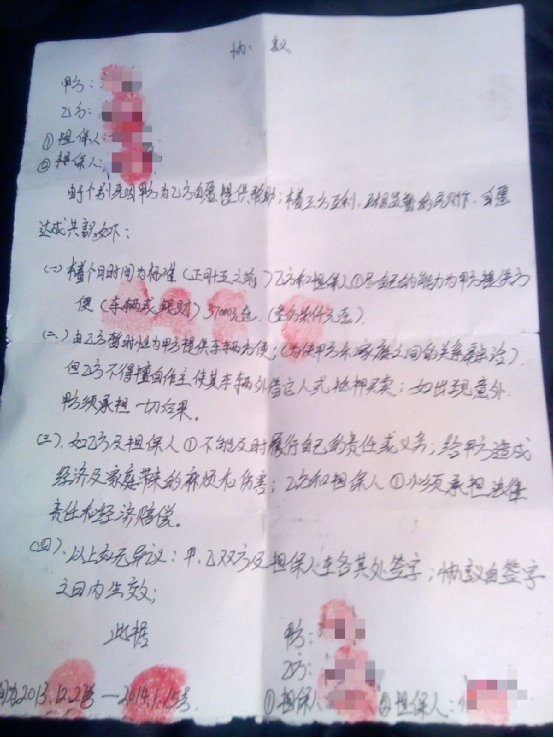 协 议
甲方：
乙方：
①担保人：
②担保人：
由于个别原因甲方为乙方自愿提供帮助；本着三方互利、互相监督的 自愿
达成共认如下：
(一) 本着个月时间为标准（正月十五之前）乙方和担保人①尽自己的能力为甲方提供方
便（车辆或钱财）37000元。（条件无
(二)、由乙方暂时性为甲方提供车辆方便；（为使甲方和家庭之间的关系
但乙方不得擅自作主使其车辆外借它人或抵押买卖；如出现意外
甲方须承担一切后果。
(三)、如乙方及担保人①不能及时履行自己的责任或义务，给甲方造成
经济及家庭带来的麻烦和伤害；乙方和担保人①必须承担法律
责任和经济赔偿。
(四)、以上如无异议：甲、乙双方及担保人在各其处签字；协议自签字
之日内生效；
此据
甲方：
乙方：
①担保人： ②担保人：
2013.12.27号—2014.1.15号